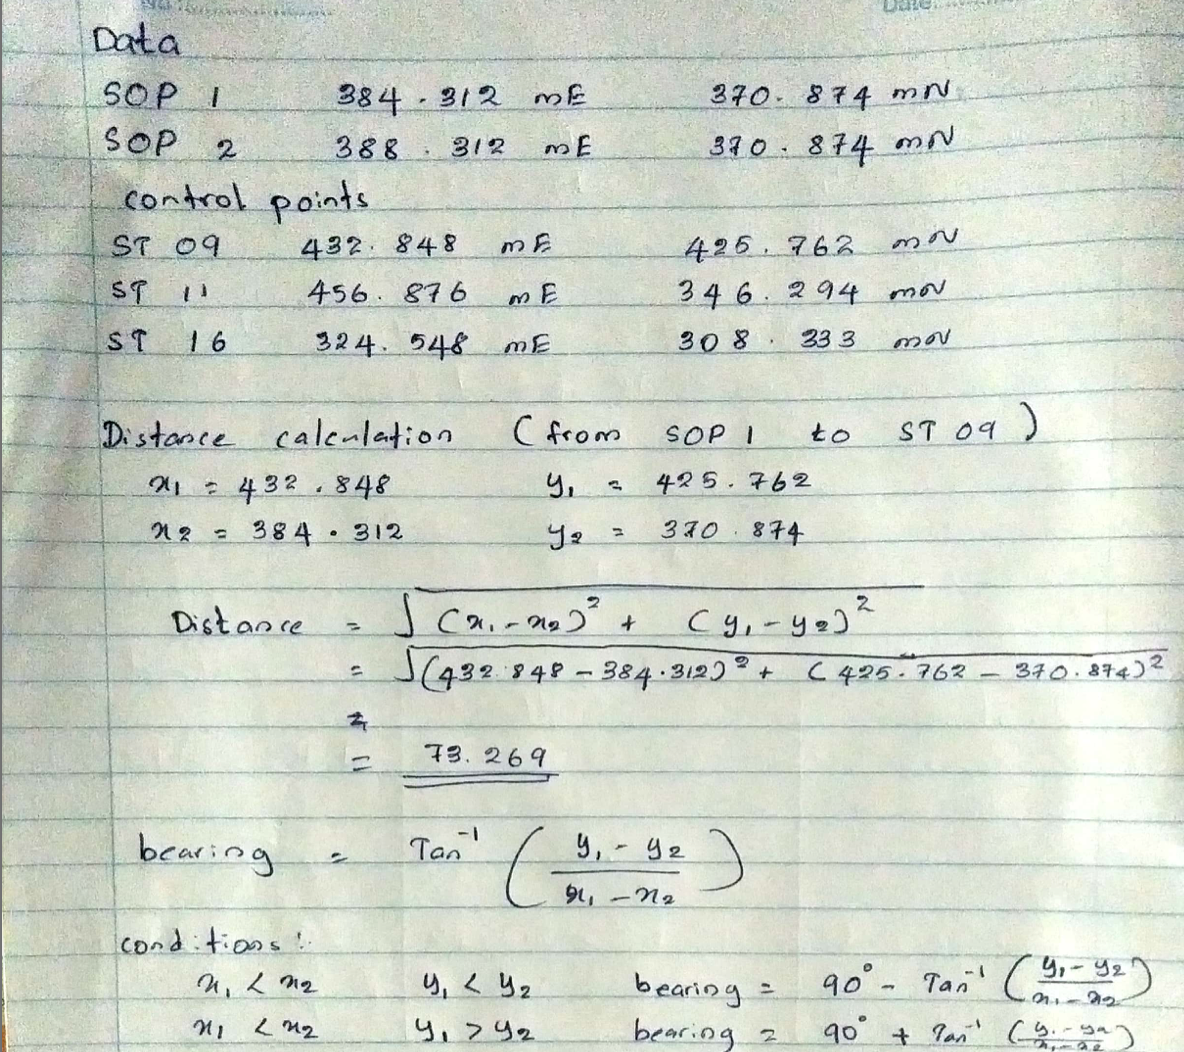 Date:
Data
SOP 1 384.312 mE 370.874 mN
SOP 2 388.312 mE 370.874 mN
control points
ST 09 432.848 mE 425.762 mN
ST 11 456.876 mE 346.294 mN
ST 16 324.548 mE 308.333 mN
Distance calculation (from SOP 1 to ST 09)
x₁ = 432.848 y₁ = 425.762
x₂ = 384.312 y₂ = 370.874
Distance = √(x₁-x₂)² + (y₁-y₂)²
= √(432.848-384.312)² + (425.762-370.874)²
= 73.269
bearing = Tan⁻¹ (y₁-y₂ / x₁-x₂)
conditions:
x₁ < x₂ y₁ < y₂ bearing = 90° - Tan⁻¹ (y₁-y₂ / x₁-x₂)
x₁ < x₂ y₁ > y₂ bearing = 90° + Tan⁻¹ (y₁-y₂ / x₁-x₂)